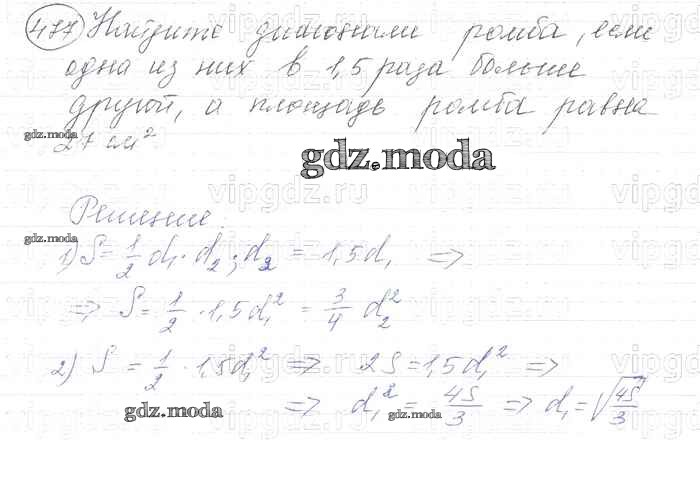 477 Найдите диагонали ромба, если
одна из них в 1,5 раза больше
другой, а площадь ромба равна
27 см²
gdz.moda
gdz.moda
Решение:
gdz.moda
1) S = 1/2 d₁ · d₂; d₂ = 1,5d₁ =>
=> S = 1/2 · 1,5d₁² = 3/4 d₂²
2) S = 1/2 · 1,5d₁² => 2S = 1,5d₁² =>
=> d₁² = 4S/3 => d₁ = √(4S/3)
gdz.moda
gdz.moda
vipgdz.ru